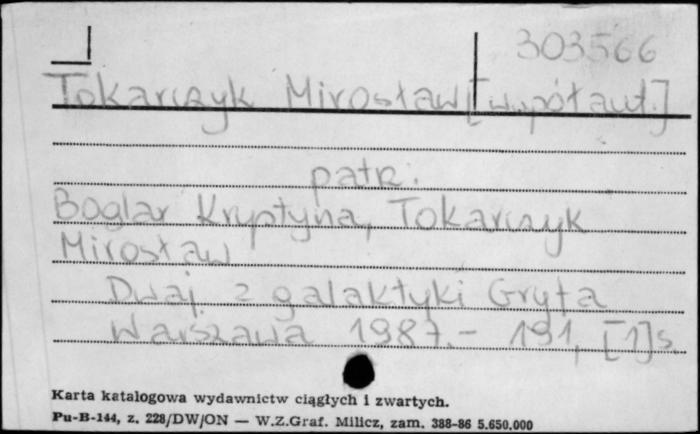 303566
Tokarczyk Mirosław [współaut.]
patrz:
Boglar Krystyna, Tokarczyk
Mirosław
Dwaj z galaktyki Gryfa
Warszawa 1987.- 191, [1]s.
Karta katalogowa wydawnictw ciągłych i zwartych.
Pu-B-144, z. 228/DW/ON — W.Z.Graf. Milicz, zam. 388-86 5.650.000